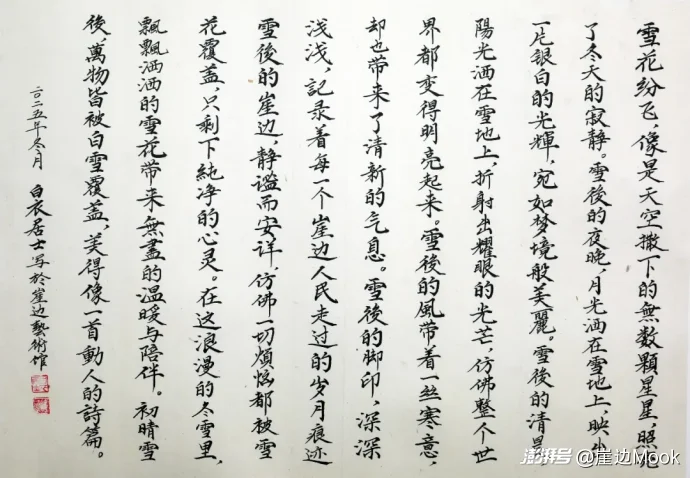 雪花纷飞，像是天空撒下的無数顆星星，照亮
了冬天的寂静。雪後的夜晚，月光洒在雪地上，映出
一片银白的光輝，宛如梦境般美麗。雪後的清晨，
陽光洒在雪地上，折射出耀眼的光芒，仿佛整个世
界都变得明亮起来。雪後的風带着一丝寒意，
却也带来了清新的气息。雪後的脚印，深深
浅浅，記录着每一个崖边人民走过的岁月痕迹
雪後的崖边，静谧而安详，仿佛一切烦恼都被雪
花覆盖，只剩下純净的心灵。在这浪漫的冬雪里，
飘飘洒洒的雪花带来無盡的温暖与陪伴。初晴雪
後，萬物皆被白雪覆盖，美得像一首動人的詩篇。
二〇二五年冬月 白衣居士写於崖边藝術馆
澎湃号@崖边Mook